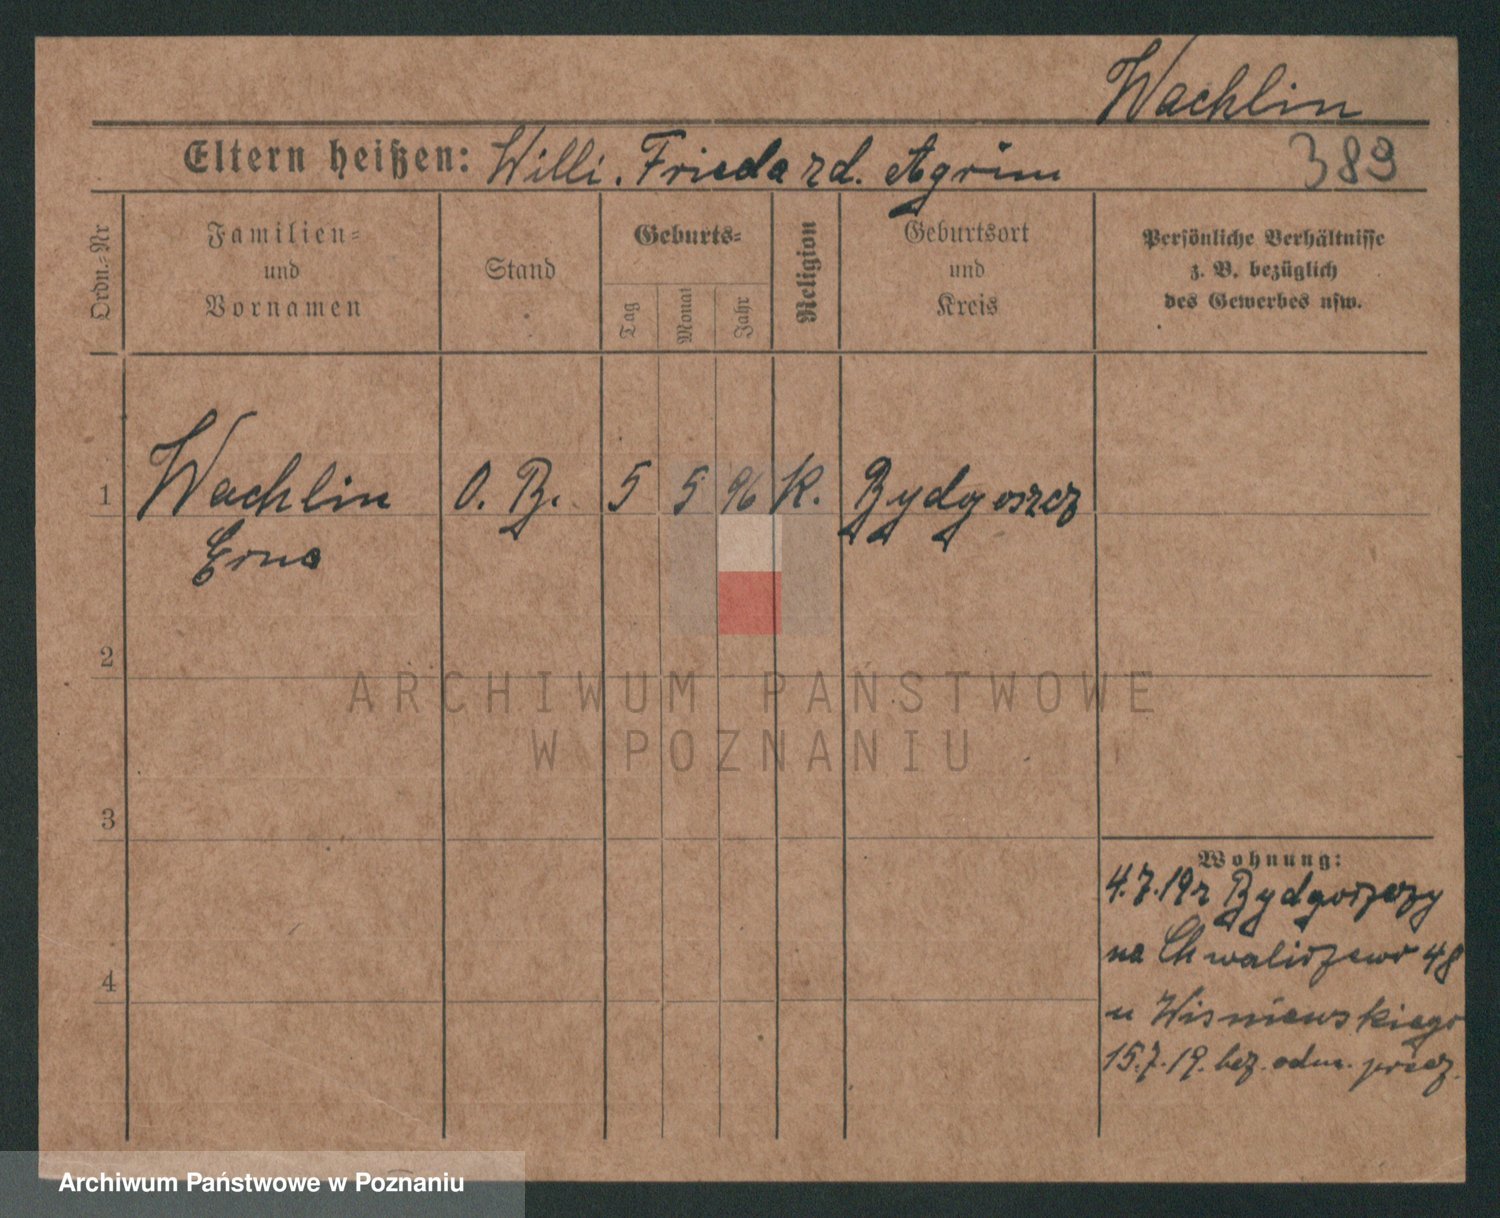 Wachlin
Eltern heißen: Willi. Frieda zd. Agrim
389
Ordn.-Nr
Familien-
und
Vornamen
Stand
Geburts-
Tag
Monat
Jahr
Religion
Geburtsort
und
Kreis
Persönliche Verhältnisse
z. B. bezüglich
des Gewerbes usw.
1 Wachlin O. B. 5 5 96 K. Bydgoszcz
Erna
2
3
4
Wohnung:
4.7.19 z Bydgoszczy
na Chwaliszewo 48
u Wisniewskiego
15.7.19. bez. odm. przez.
ARCHIWUM PAŃSTWOWE
W POZNANIU
Archiwum Państwowe w Poznaniu